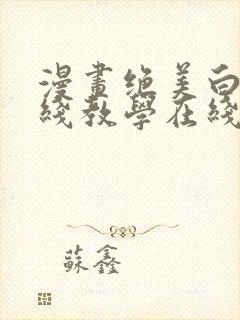 漫畫絕美白
綫教學在綫
蘇鑫